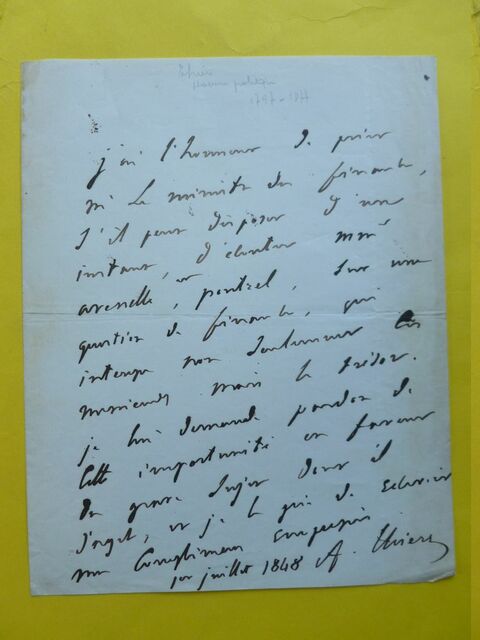 Thiers
homme politique
1797-1877
j'ai l'honneur de prier
M. le ministre des finances,
s'il peut disposer d'un
instant, d'écouter MM.
et , sur une
question de finances, qui
intéresse non seulement ces
messieurs mais le trésor.
je lui demande pardon de
cette importunité en faveur
du grave sujet dont il
s'agit, et je le prie de recevoir
mes compliments empressés.
1er juillet 1848 A. Thiers